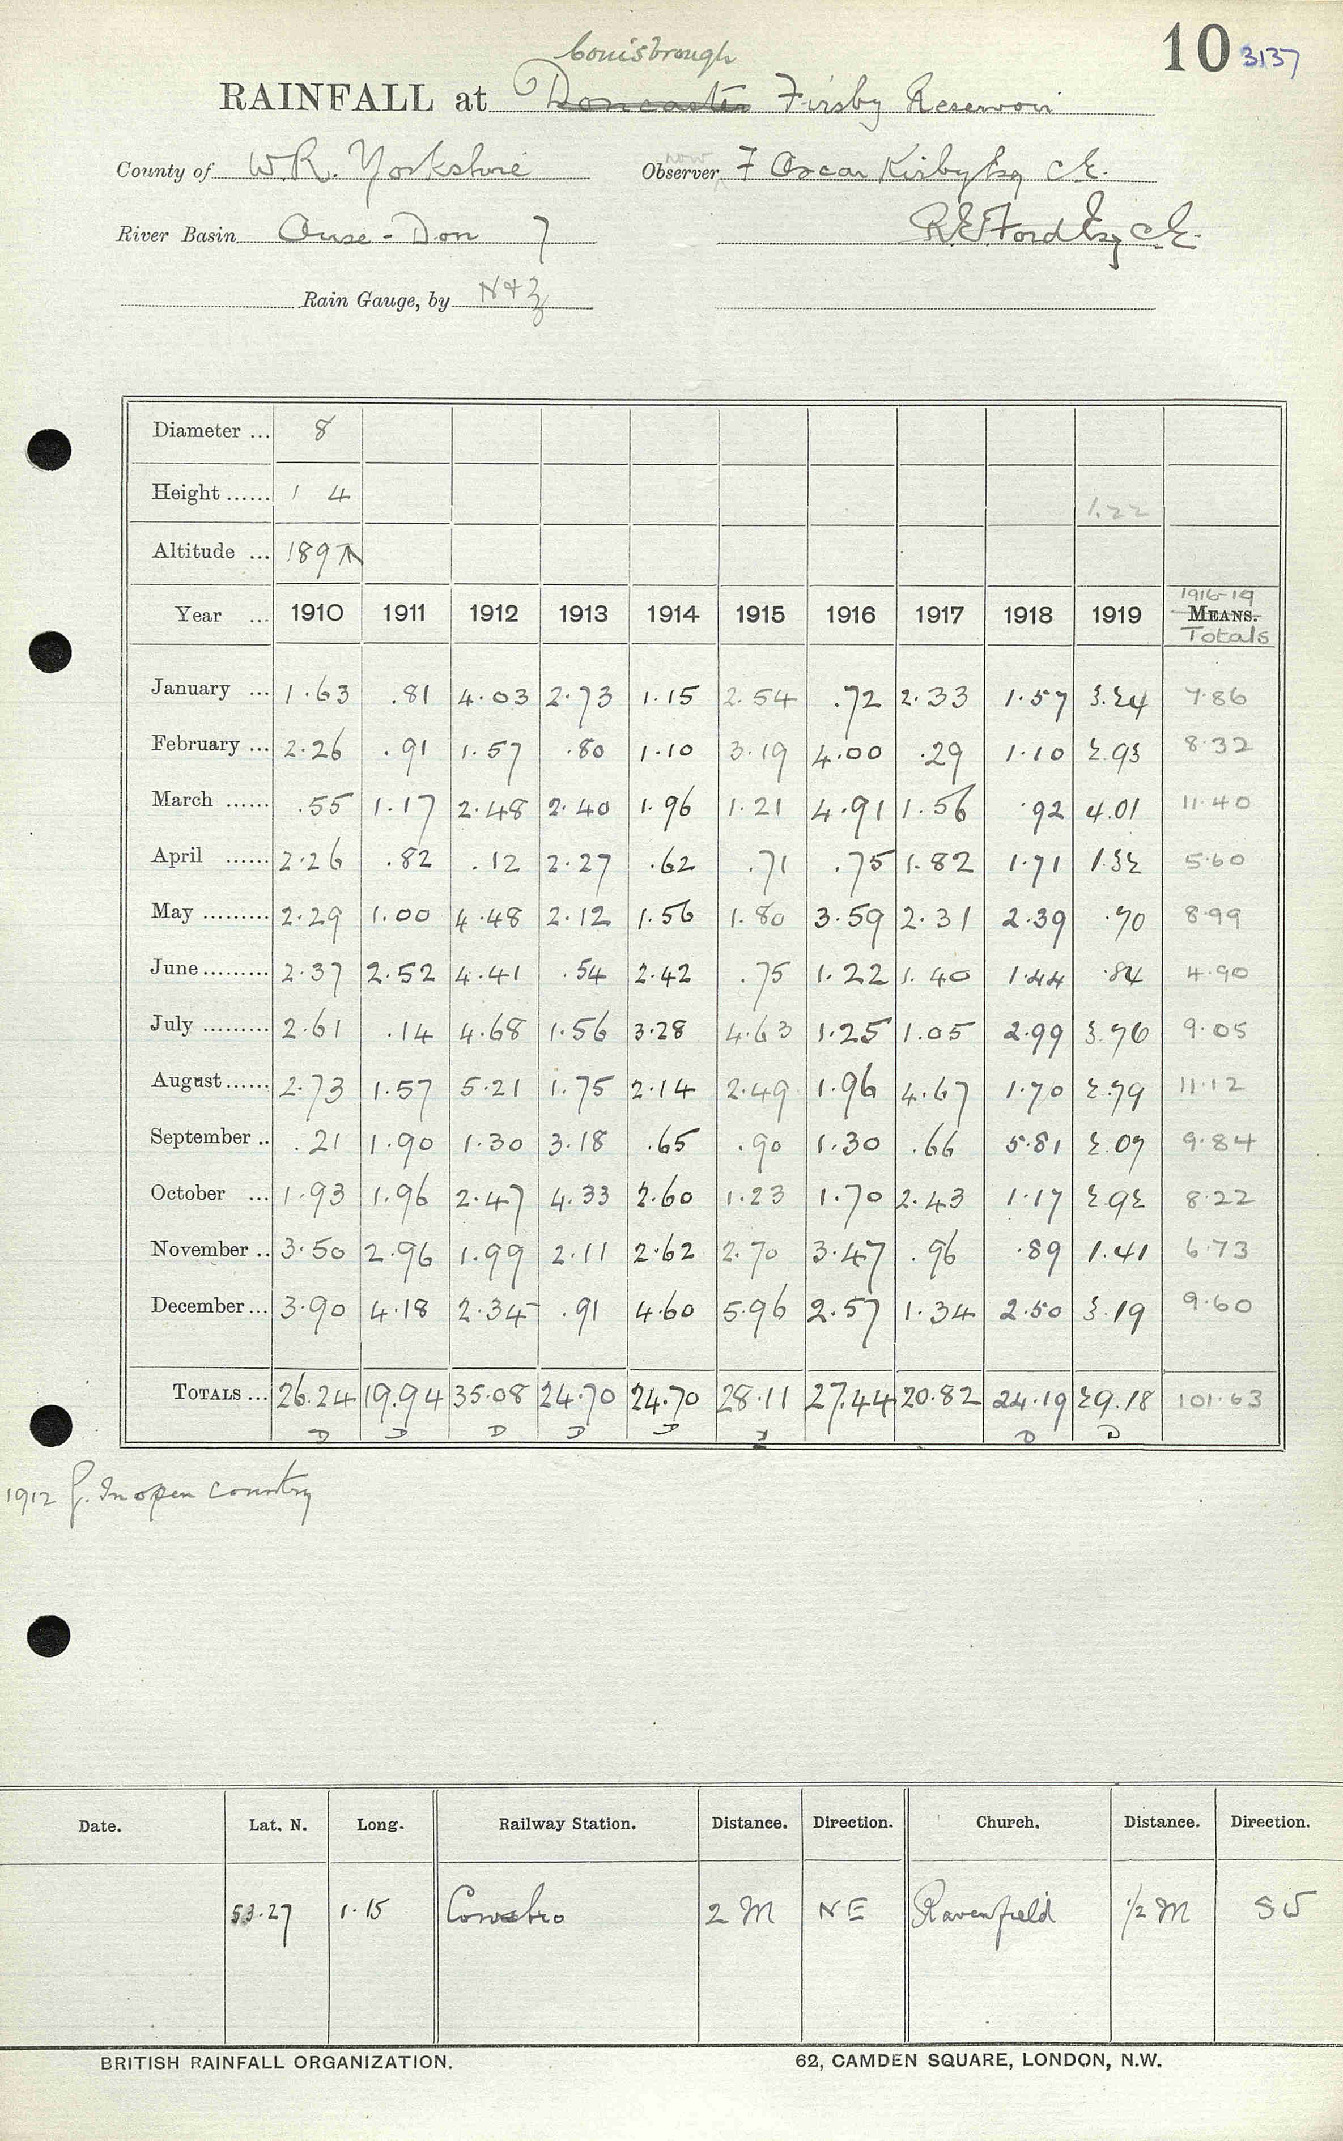 10 3137
Conisbrough
RAINFALL at Doncaster Firsby Reservoir
County of W.R. Yorkshire Observer now F Oscar Kirby Esq C.E.
River Basin Ouse - Don 7 R E Ford Esq C.E.
Rain Gauge, by N & Z
Diameter ... 8
Height ...... 1 4 1.22
Altitude ... 189
Year ... 1910 1911 1912 1913 1914 1915 1916 1917 1918 1919 1916-19 MEANS. Totals
January ... 1.63 .81 4.03 2.73 1.15 2.54 .72 2.33 1.57 3.24 7.86
February ... 2.26 .91 1.57 .80 1.10 3.19 4.00 .29 1.10 2.93 8.32
March ...... .55 1.17 2.48 2.40 1.96 1.21 4.91 1.56 .92 4.01 11.40
April ...... 2.26 .82 .12 2.27 .62 .71 .75 1.82 1.71 1.32 5.60
May ......... 2.29 1.00 4.48 2.12 1.56 1.80 3.59 2.31 2.39 .70 8.99
June ......... 2.37 2.52 4.41 .54 2.42 .75 1.22 1.40 1.44 .84 4.90
July ......... 2.61 .14 4.68 1.56 3.28 4.63 1.25 1.05 2.99 3.76 9.05
August ...... 2.73 1.57 5.21 1.75 2.14 2.49 1.96 4.67 1.70 2.79 11.12
September .. .21 1.90 1.30 3.18 .65 .90 1.30 .66 5.81 2.07 9.84
October ... 1.93 1.96 2.47 4.33 2.60 1.23 1.70 2.43 1.17 2.92 8.22
November .. 3.50 2.96 1.99 2.11 2.62 2.70 3.47 .96 .89 1.41 6.73
December ... 3.90 4.18 2.34 .91 4.60 5.96 2.57 1.34 2.50 3.19 9.60
TOTALS ... 26.24 19.94 35.08 24.70 24.70 28.11 27.44 20.82 24.19 29.18 101.63
D D D D D D D
1912 G. In open country
Date. Lat. N. Long. Railway Station. Distance. Direction. Church. Distance. Direction.
53.27 1.15 Conisbro 2 M NE Ravenfield 1/2 M SW
BRITISH RAINFALL ORGANIZATION. 62, CAMDEN SQUARE, LONDON, N.W.